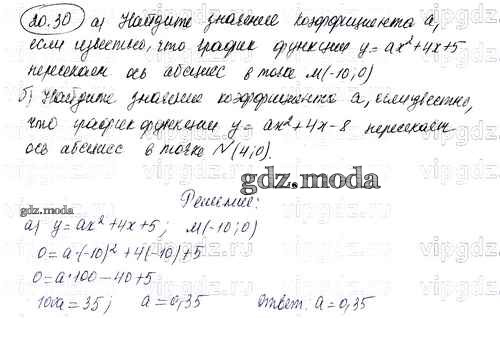 20.30 а) Найдите значение коэффициента а,
если известно, что график функции y=ax²+4x+5
пересекает ось абсцисс в точке M(-10;0)
б) Найдите значение коэффициента а, если известно,
что график функции y=ax²+4x-8 пересекает
ось абсцисс в точке N(4;0).
gdz.moda
Решение:
gdz.moda
а) y=ax²+4x+5; M(-10;0)
0=a·(-10)²+4(-10)+5
0=a·100-40+5
100a=35; a=0,35 Ответ: a=0,35